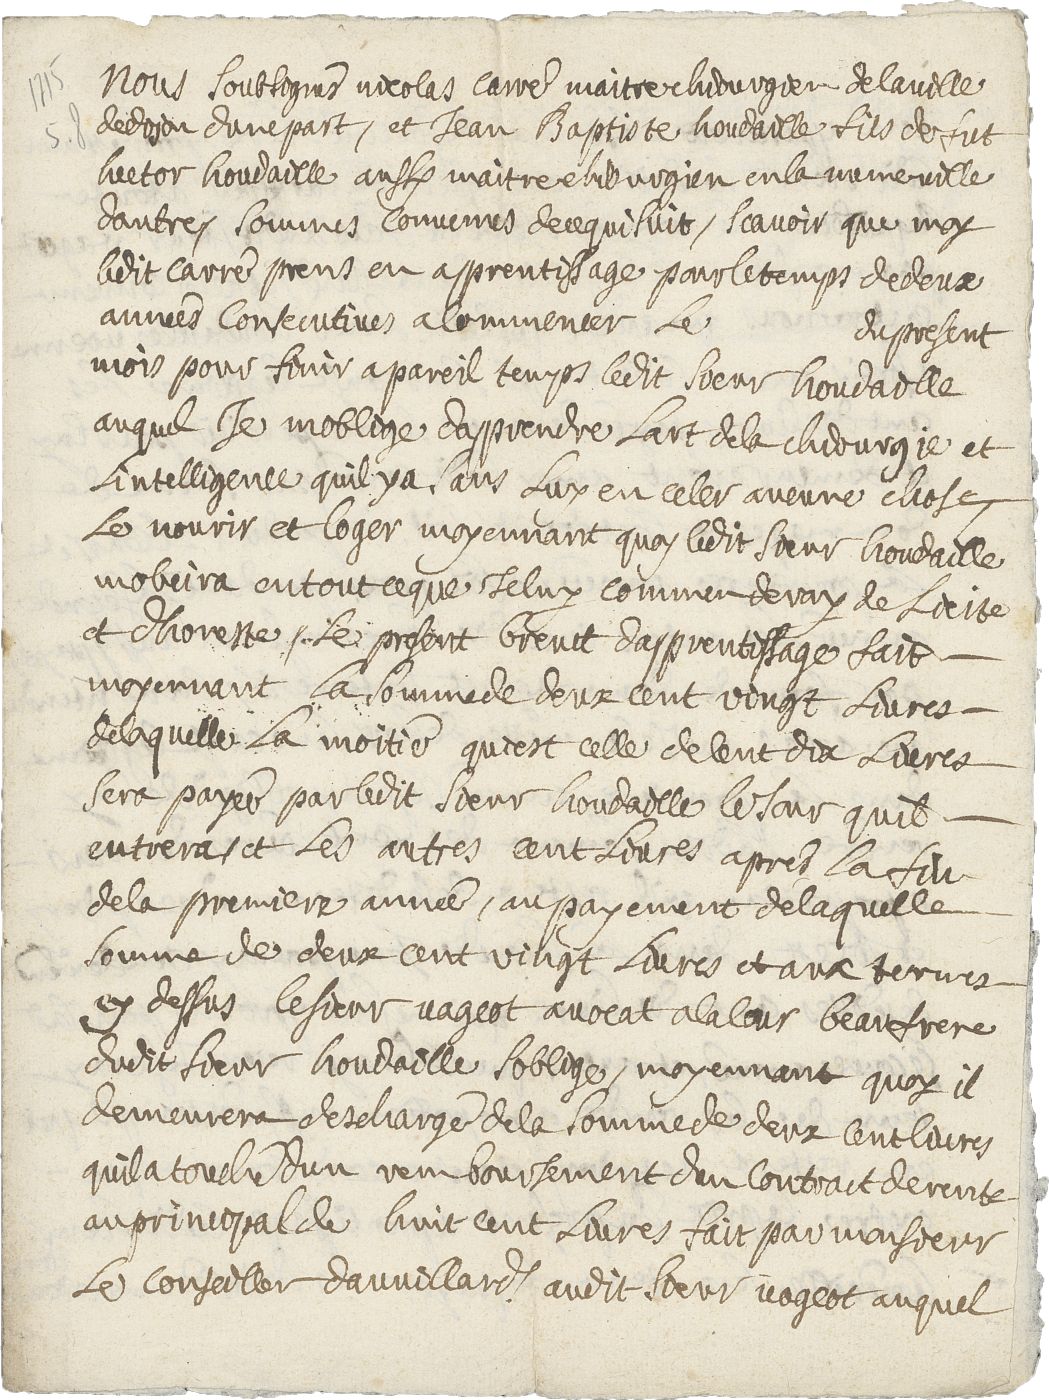 1715
5.8
Nous soubsignés nicolas carré maitre chirurgien delaville
dedijon dunepart, et Jean Baptiste houdaille fils defut
hector houdaille aussy maitre chirurgien enla meme ville
dautre, sommes convenus decequisuit, scavoir que moy
ledit carré prens en apprentissage pourletemps dedeux
années consecutives a commencer le dupresent
mois pour finir apareil temps ledit sieur houdaille
auquel Je moblige dapprendre Lart dela chirurgie et
Lintelligence quil ya sans luy en celer aucune chose,
Le nourir et loger moyennant quoy ledit sieur houdaille
mobeira entout ceque Jeluy commenderay de Licite
et dhoneste, Le present brevet dapprentissage fait
moyennant La sommede deux cent vingt Livres
delaquelle La moitié quiest celle decent dix Livres
sera payeé parledit sieur houdaille leJour quil
entrera, et Les autres cent Livres aprés La fin
dela premiere anneé, au payement delaquelle
somme de deux cent vingt Livres et aux termes
cy dessus lesieur vageot avocat alacour beaufrere
dudit sieur houdaille soblige, moyennant quoy il
demeurera deschargé dela sommede deux centlivres
quila touché dun remboursement dun contract derente
auprincipal de huit cent Livres fait par monsieur
Le conseiller dauvillard audit sieur vageot auquel